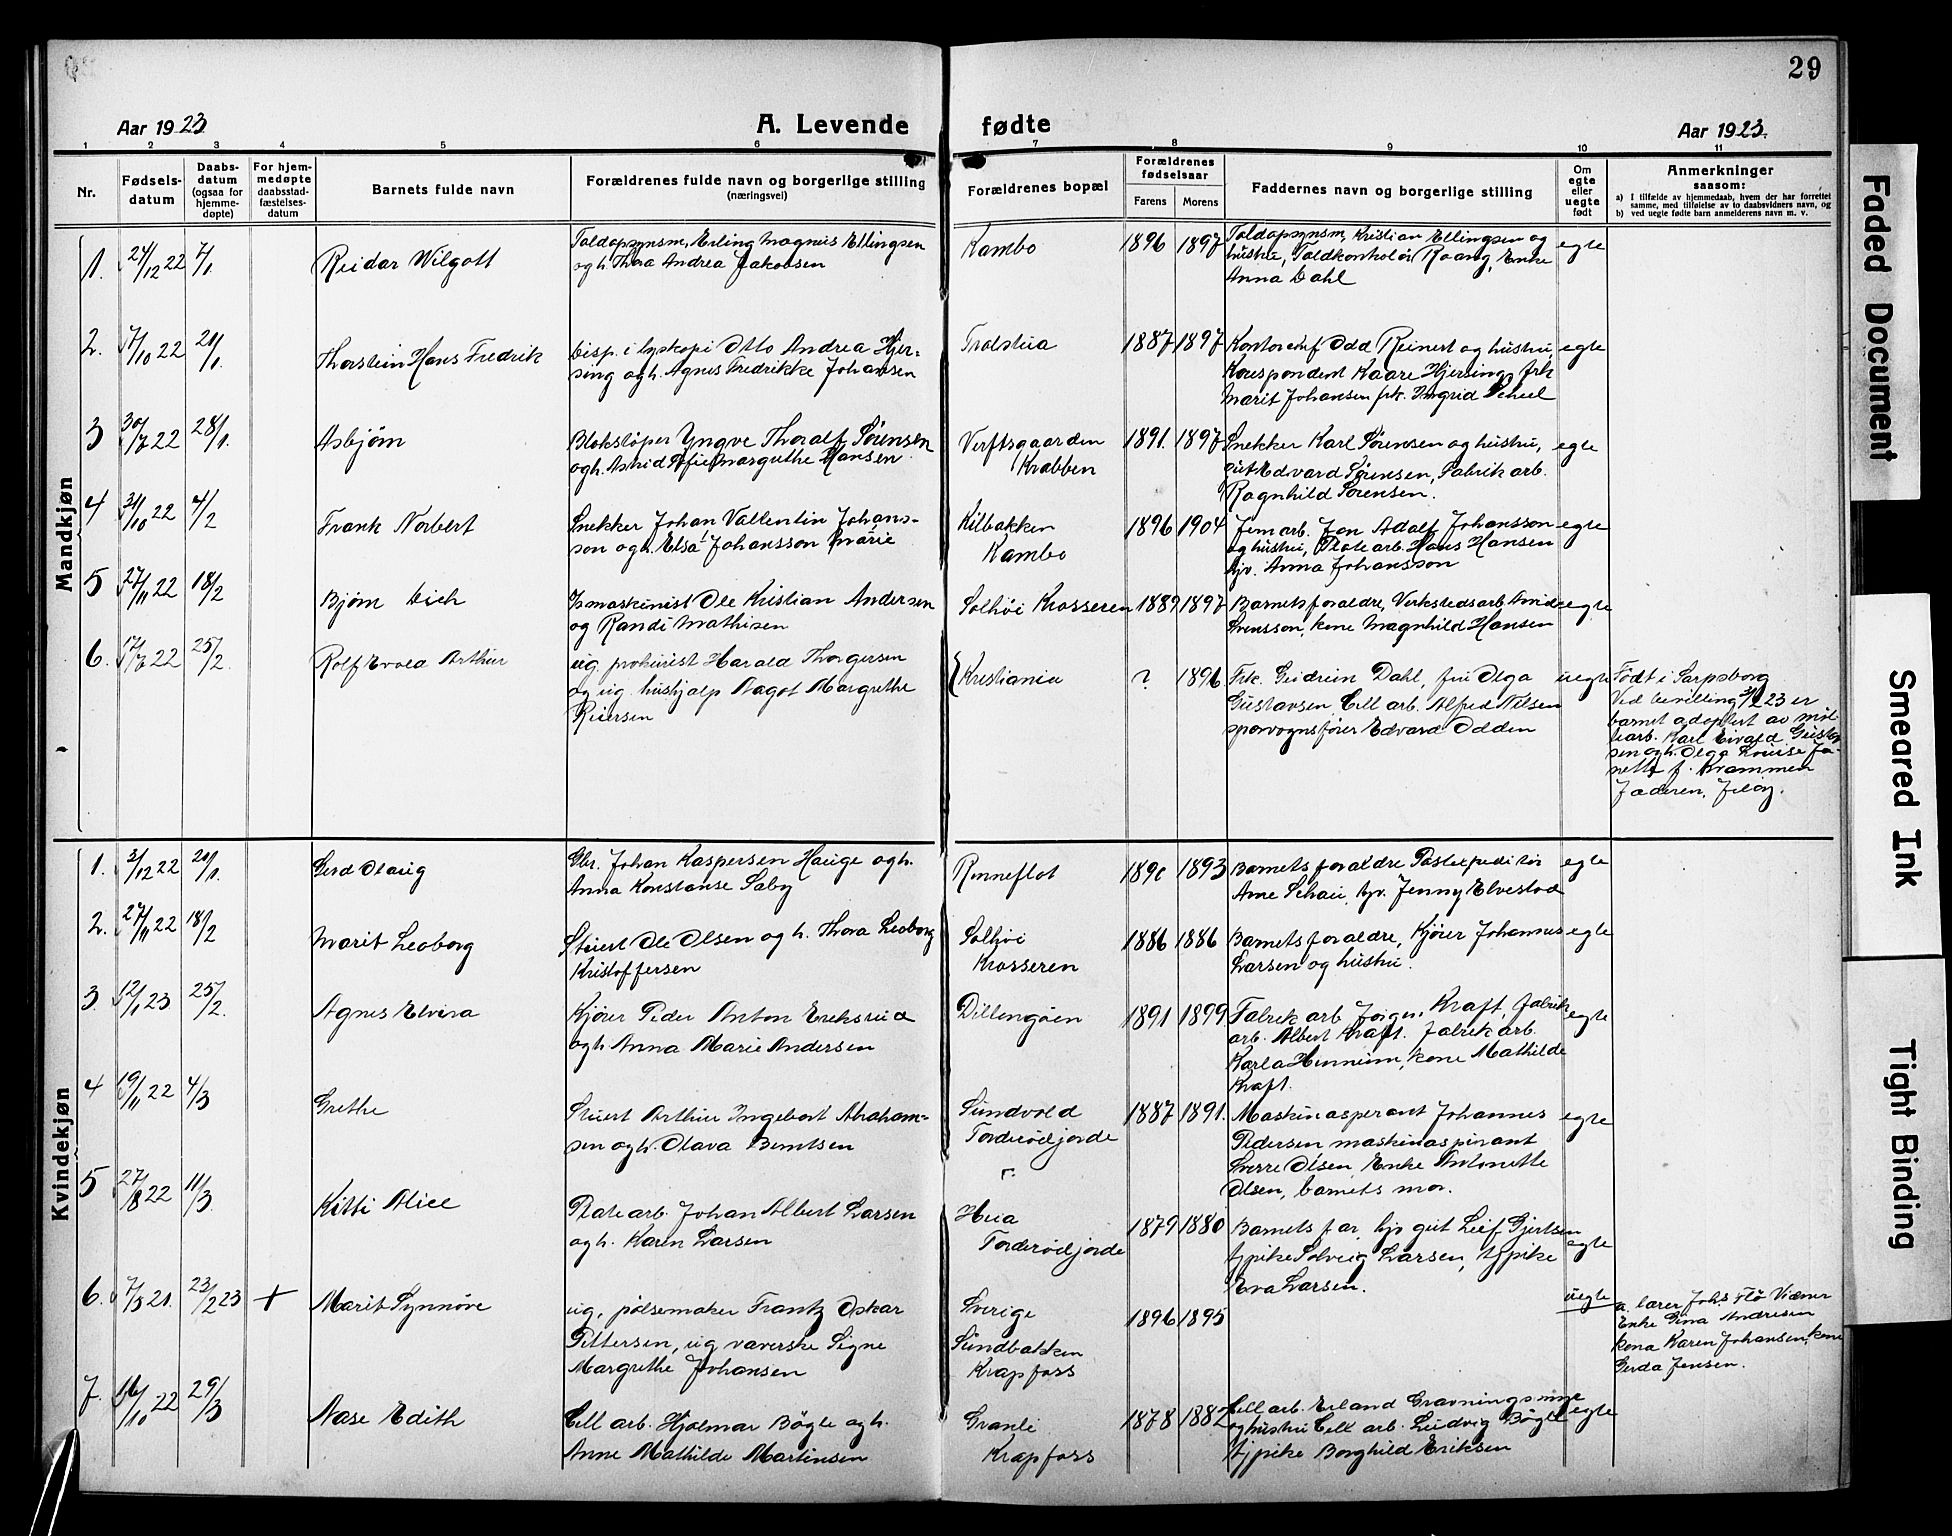 29
Aar 1923
A. Levende
fødte
Aar 1923.
1 2 3 4 5 6 7 8 9 10 11
Nr.
Fødsels-
datum
Daabs-
datum
(ogsaa for
hjemme-
døpte)
For hjem-
medøpte
daabsstad-
fæstelses-
datum
Barnets fulde navn
Forældrenes fulde navn og borgerlige stilling
(næringsvei)
Forældrenes bopæl
Forældrenes
fødselsaar
Farens
Morens
Faddernes navn og borgerlige stilling
Om
egte
eller
uegte
født
Anmerkninger
saasom:
a) I tilfælde av hjemmedaab, hvem der har forrettet
samme, med tilføielse av to daabsvidners navn, og
b) ved uegte fødte barn anmelderens navn m. v.
Mandkjøn
1. 24/12 22 7/1. Reidar Wilgott
Toldopsynsm, Erling Magnus Ellingsen
og h. Thora Andrea Jakobsen
Kambo
1896 1897
Toldopsynsm, Kristian Ellingsen og
hustru, Toldkontrolør Roang, Enke
Anna Dahl
egte
2. 7/10 22 21/1. Thorstein Hans Fredrik
bisp. i lyskopi Otto Andrea Hjer-
sing og h. Agnes Fredrikke Johansen
Trolstua
1887 1897
Kontorchef Odd Reinert og hustru,
Korespondent Kaare Hjersing, frk
Marit Johansen frk. Ingrid Scheel
egte
3 30/7 22 28/1. Asbjørn
Blokstøper Yngve Thoralf Sørensen
og h. Astrid Sofie Margrethe Hansen
Verftsgaarden
Krabben
1891. 1897
Snekker Karl Sørensen og hustru,
gut Edvard Sørensen, Fabrik arb.
Ragnhild Sørensen.
egte
4 31/10 22 4/2 Frank Norbert
Snekker Johan Vallentin Johans-
son og h. Elsa Johansson Marie
Kilbakken
Kambo
1896 1904
Jern arb. Jon Adolf Johansson
og hustru, Plate arb. Hans Hansen
hjv. Anna Johansson
egte
5 27/11 22 18/2 Bjørn Erich
Ismaskinist Ole Kristian Andersen
og Randi Mathisen
Solhøi Krosseren
1889 1897
Barnets foraldre, Verkstedsarb. Arvid
Svensson, kone Magnhild Hansen
egte
6. 17/7 22 25/2. Rolf Evald Arthur
ug. prokurist Harald Thorgersen
og ug. hushjalp Aagot Margrethe
Reiersen
Kristiania
? 1896
Frk. Gudrun Dahl, fru Olga
Gustavsen Cell arb. Alfred Nilsen
sporvognsfører Edvard Odden
uegte
Født i Sarpsborg
Ved bevilling 3/2 23 er
barnet adoptert av møl-
learb. Karl Eivald Gustav-
sen og h. Olga Louise Ja-
nette f. Krammen
Jæderen, Jeløy.
Kvindekjøn
1. 3/12 22 21/1. Gerd Olaug
Gbr. Johan Kaspersen Hauge og h.
Anna Konstanse Saby
Renneflot
1890 1893
Barnets foraldre Postexpeditør
Arne Schau, hjv. Jenny Elvestad
egte
2. 27/11 22 18/2 Marit Leoborg
Stuert Ole Olsen og h. Thora Leoborg
Kristoffersen
Solhøi
Krosseren
1886 1886
Barnets foraldre, Kjører Johannes
Larsen og hustru.
egte
3. 12/1 23 25/2. Agnes Elvira
Kjører Peder Anton Eriksrud
og h. Anna Marie Andersen
Dillingøen
1891 1899
Fabrik arb Jørgen Kraft, fabrik
arb. Albert Kraft. Fabrik arb.
Karla Hennum, kone Mathilde
Kraft.
egte
4 19/11 22 4/3 Grethe
Stuert Arthur Ingebort Abraham-
sen og h. Olava Berntsen
Sundvold
Torderødjorde
1887 1891.
Maskinasperant Johannes
Pedersen maskinaspirant
Sverre Olsen, Enke Antonette
Olsen, barnets mor.
egte
5 27/8 22 11/3. Kitti Alice
Plate arb. Johan Albert Larsen
og h. Karen Larsen
Heia
Torderødjorde
1879 1880
Barnets far, hjv gut Leif Gjertsen
hjpike Solveig Larsen, hjpike
Eva Larsen.
egte
6. 7/3 21. 23/2 23 + Marit Synnøve
ug, pølsemaker Frantz Oskar
Pettersen, ug vaverske Signe
Margrethe Johansen
Sverige
Sundbakken
Krapfoss
1896 1895
uegte
a. lærer Johs. Flø Vidner
Enke Gina Andresen
kona Karen Johansen, kone
Gerda Jensen.
7. 16/10 22 29/3 Aase Edith
Cell arb. Hjalmar Bøgle og h.
Anne Mathilde Martinsen
Granli
Krapfoss
1878 1882
Cell arb. Erland Gravningsmyr
og hustru Cell arb. Ludvig Bøgle
hjpike Borghild Eriksen
egte
Faded Document
Smeared Ink
Tight Binding